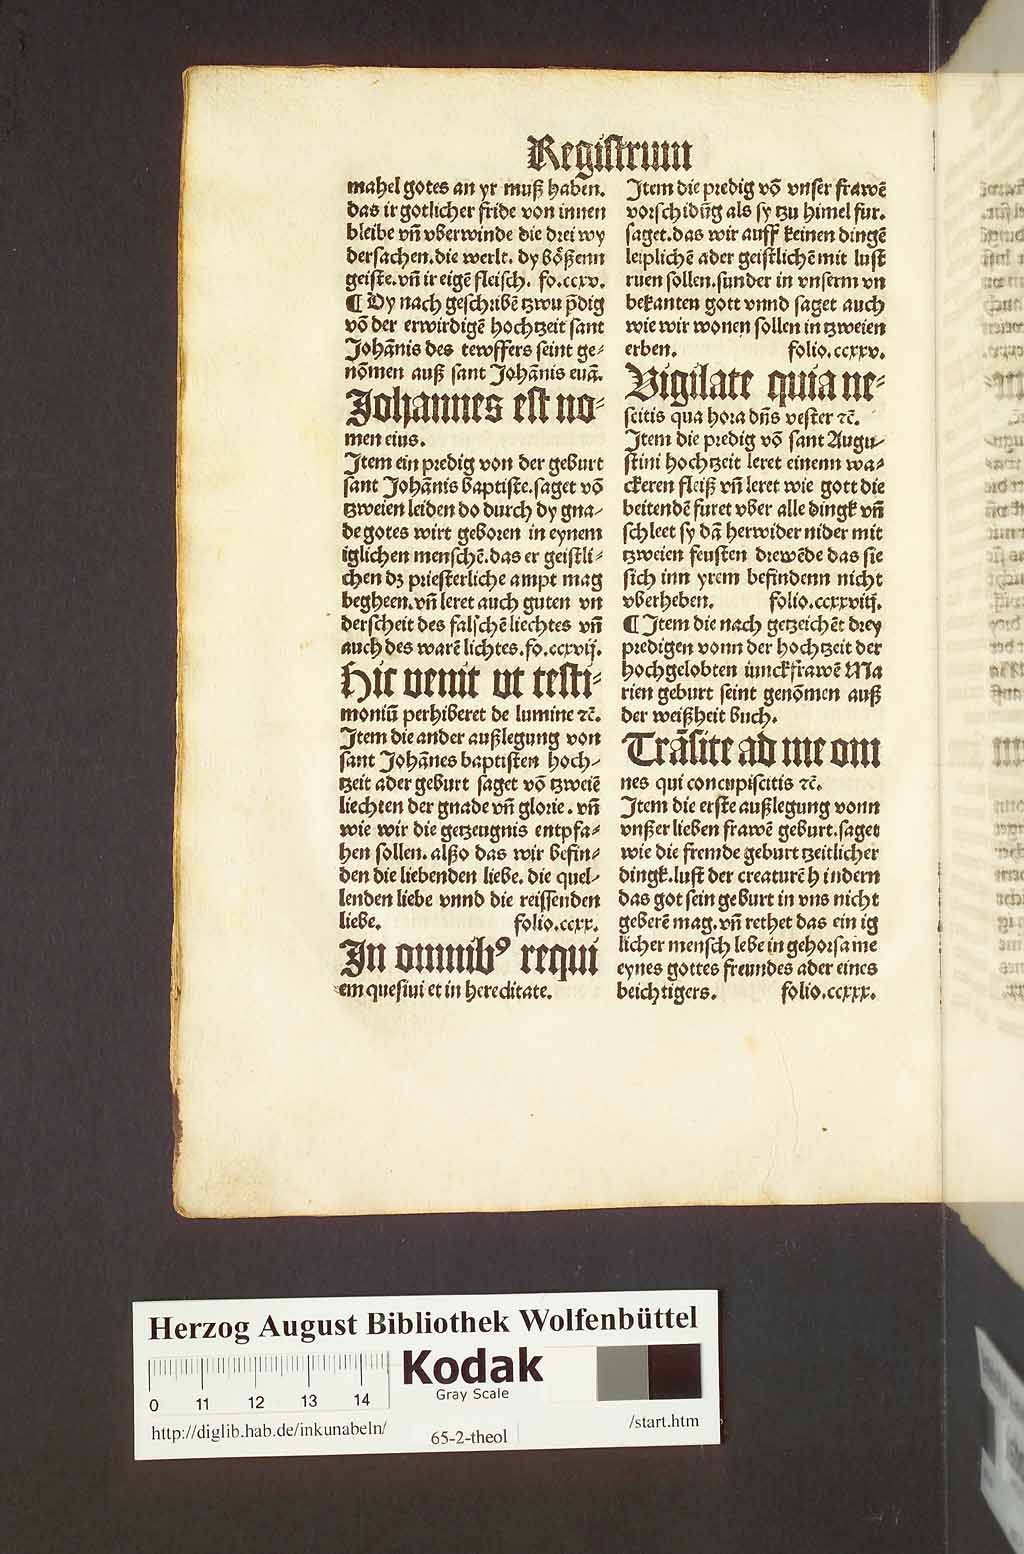 Registrum
mahel gotes an yr muß haben.
das ir gotlicher fride von innen
bleibe vn̄ vberwinde die drei wy
dersachen. die werlt. dy bȯßenn
geiste. vn̄ ir eigē fleisch. fo.ccxv.
¶ Dy nach geschribē tzwu p̄dig
vō der erwirdigē hochtzeit sant
Johānis des tewffers seint ge⸗
nōmen auß sant Johānis euā.
Johannes est no⸗
men eius.
Item ein predig von der geburt
sant Johānis baptiste. saget vō
tzweien leiden do durch dy gna⸗
de gotes wirt geboren in eynem
iglichen menschē. das er geistli⸗
chen dz priesterliche ampt mag
begheen. vn̄ leret auch guten vn
derscheit des falschē liechtes vn̄
auch des warē lichtes. fo.ccxvij.
Hic uenit ut testi⸗
moniū perhiberet de lumine ⁊c̄.
Item die ander außlegung von
sant Johānes baptisten hoch⸗
tzeit ader geburt saget vō tzweiē
liechten der gnade vn̄ glorie. vn̄
wie wir die getzeugnis entpfa⸗
hen sollen. alßo das wir befin⸗
den die liebenden liebe. die quel⸗
lenden liebe vnnd die reissenden
liebe. folio.ccxx.
In omnibꝰ requi
em quesiui et in hereditate.
Item die predig vō vnser frawē
vorschidūg als sy tzu himel fur.
saget. das wir auff keinen dingē
leiplichē ader geistlichē mit lust
ruen sollen. sunder in vnserm vn
bekanten gott vnnd saget auch
wie wir wonen sollen in tzweien
erben. folio.ccxxv.
Vigilate quia ne⸗
scitis qua hora dn̄s vester ⁊c̄.
Item die predig vō sant Augu⸗
stini hochtzeit leret einenn wa⸗
ckeren fleiß vn̄ leret wie gott die
beitendē furet vber alle dingk vn̄
schleet sy dā herwider nider mit
tzweien feusten drewēde das sie
sich inn yrem befindenn nicht
vberheben. folio.ccxxviij.
¶ Item die nach getzeichēt drey
predigen vonn der hochtzeit der
hochgelobten iunckfrawē Ma
rien geburt seint genōmen auß
der weißheit buch.
Trāsite ad me om
nes qui concupiscitis ⁊c̄.
Item die erste außlegung vonn
vnßer lieben frawē geburt. saget
wie die fremde geburt tzeitlicher
dingk. lust der creaturē hindern
das got sein geburt in vns nicht
geberē mag. vn̄ rethet das ein ig
licher mensch lebe in gehorsame
eynes gottes freundes ader eines
beichtigers. folio.ccxxx.
Herzog August Bibliothek Wolfenbüttel
Kodak
Gray Scale
0 11 12 13 14
http://diglib.hab.de/inkunabeln/
65-2-theol
/start.htm